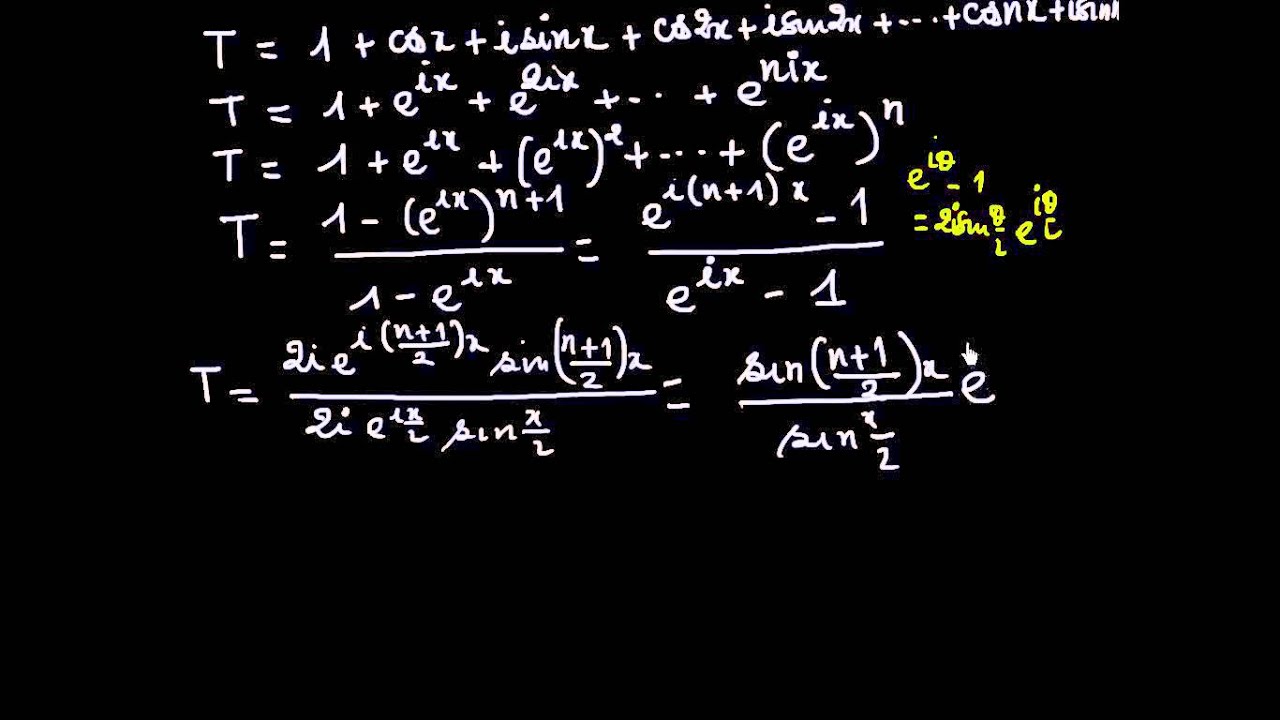 T = 1 + cos x + i sin x + cos 2x + i sin 2x + ... + cos nx + i sin
T = 1 + e^{ix} + e^{2ix} + ... + e^{nix}
T = 1 + e^{ix} + (e^{ix})^2 + ... + (e^{ix})^n
e^{iθ} - 1
= 2i sin θ/2 e^{iθ/}
T = (1 - (e^{ix})^{n+1}) / (1 - e^{ix}) = (e^{i(n+1)x} - 1) / (e^{ix} - 1)
T = (2i e^{i((n+1)/2)x} sin((n+1)/2)x) / (2i e^{ix/2} sin x/2) = (sin((n+1)/2)x) / (sin x/2) e